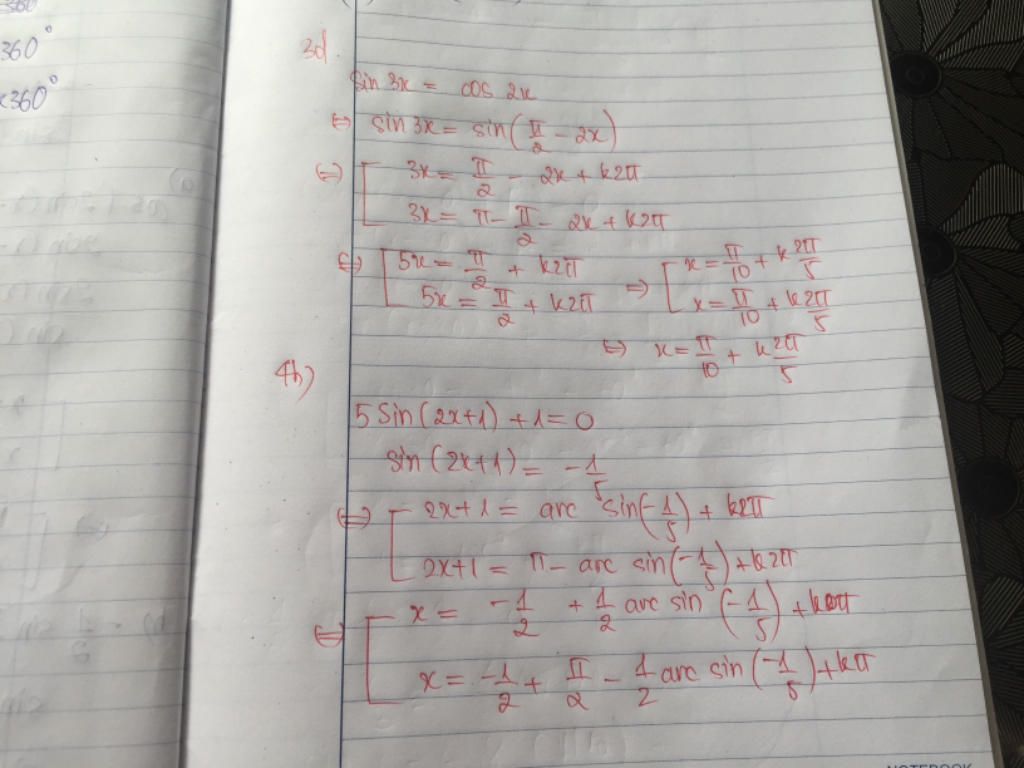 360°
x360°
3d.
sin 3x = cos 2x
⇔ sin 3x = sin(π/2 - 2x)
⇔ [ 3x = π/2 - 2x + k2π
3x = π - π/2 - 2x + k2π
⇔ [ 5x = π/2 + k2π ⇒ [ x = π/10 + k 2π/5
5x = π/2 + k2π x = π/10 + k 2π/5
⇔ x = π/10 + k 2π/5
4h)
5 Sin (2x+1) + 1 = 0
sin (2x+1) = -1/5
⇔ [ 2x+1 = arc sin(-1/5) + k2π
2x+1 = π - arc sin(-1/5) + k2π
⇔ [ x = -1/2 + 1/2 arc sin (-1/5) + kπ
x = -1/2 + π/2 - 1/2 arc sin (-1/5) + kπ
NOTEBOOK